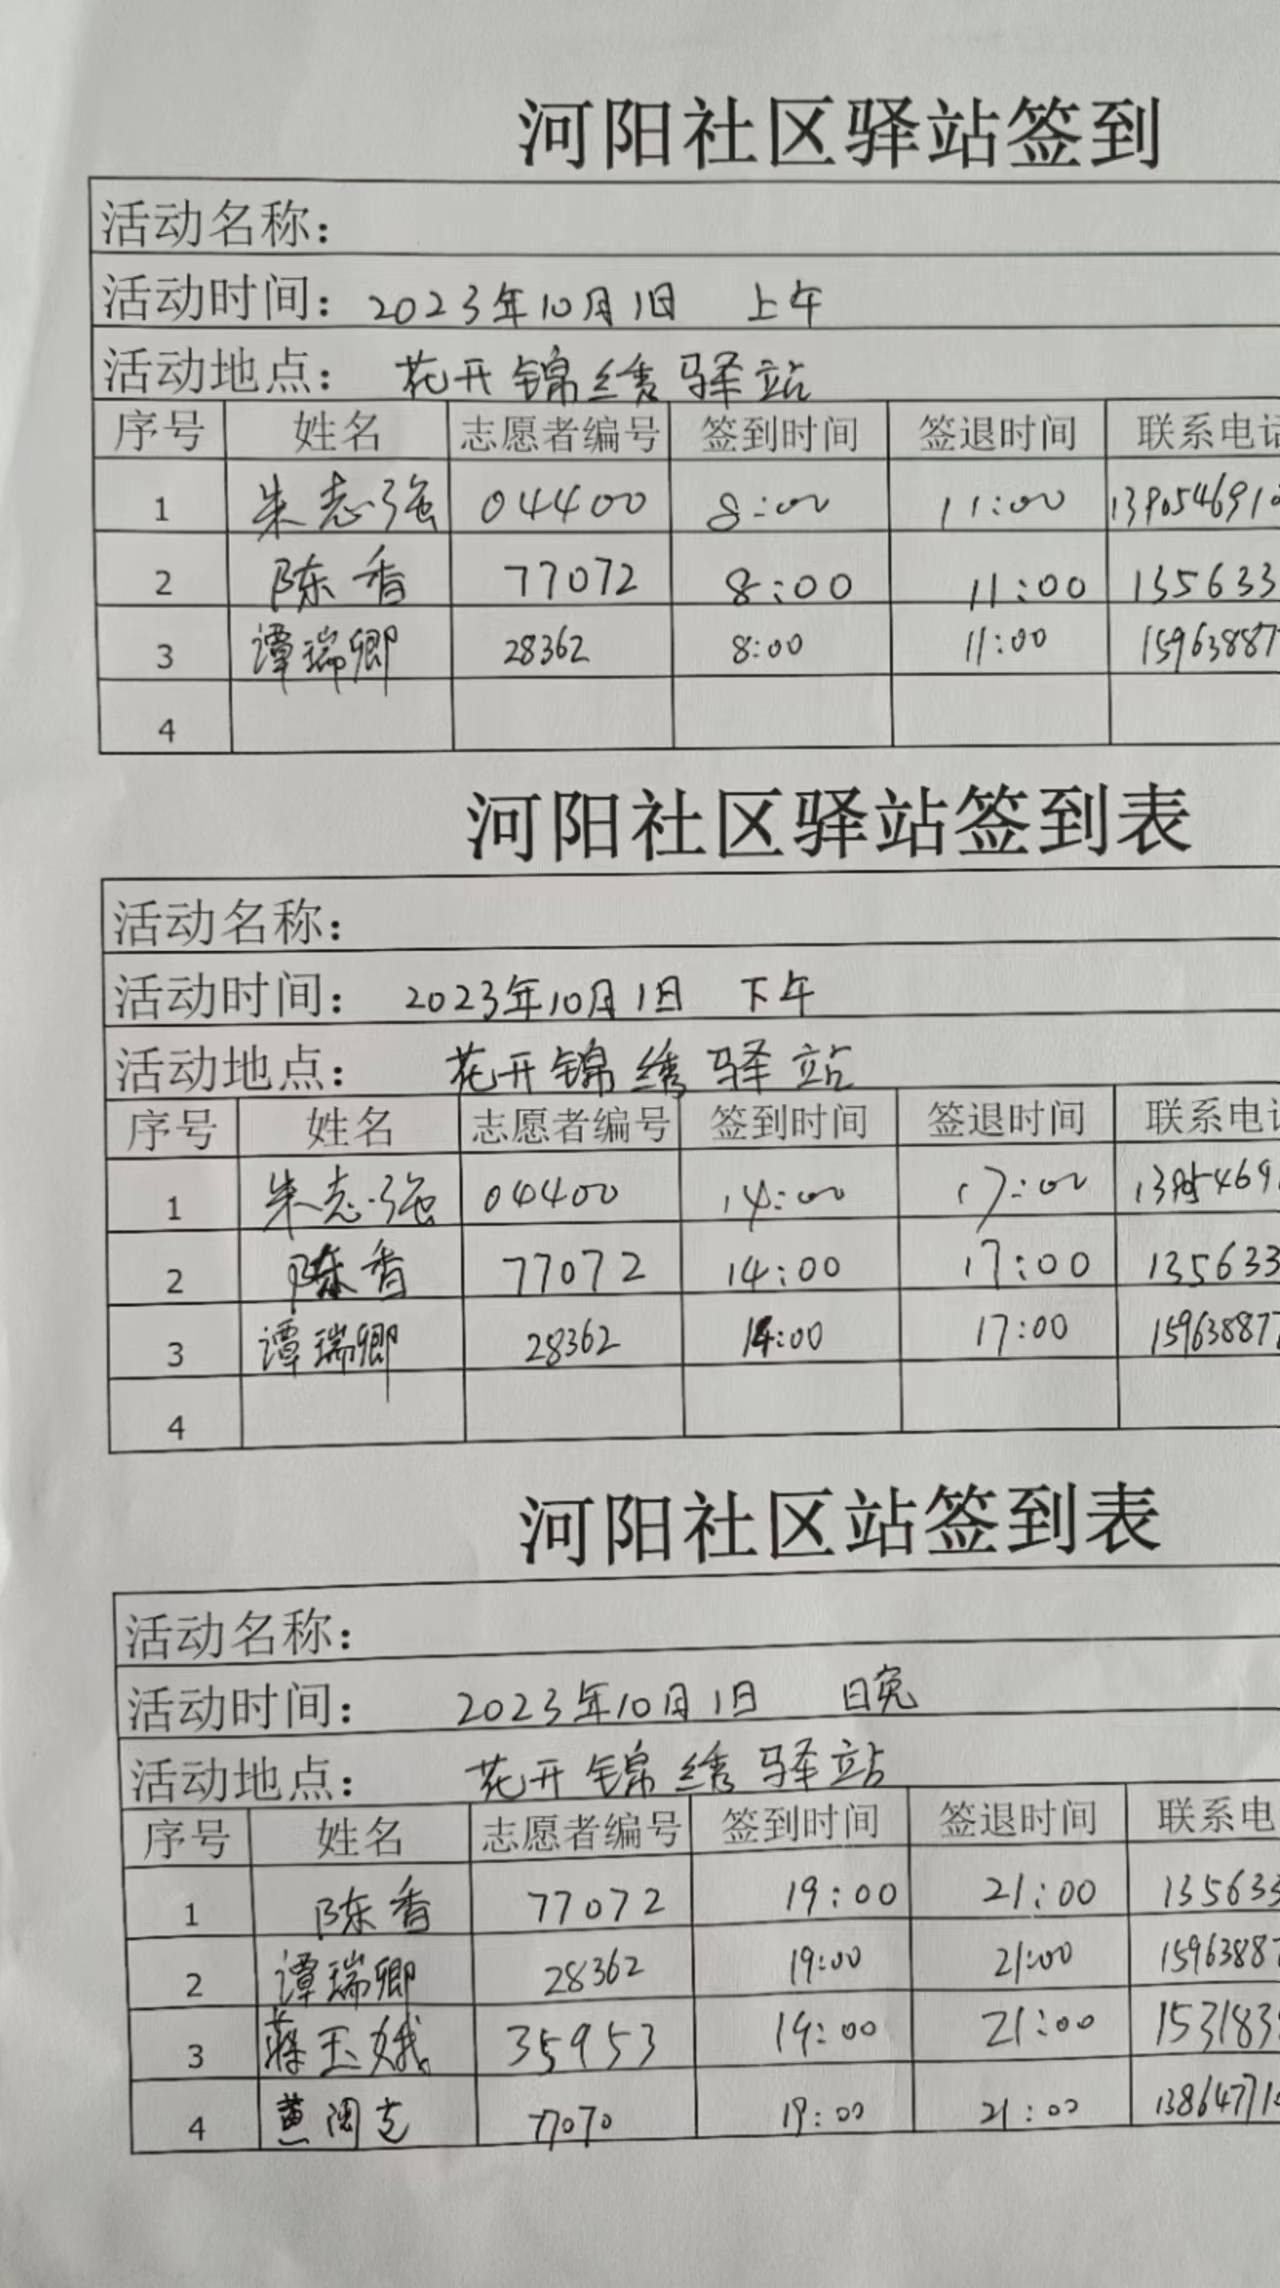 河阳社区驿站签到
活动名称：
活动时间：2023年10月1日 上午
活动地点：花开锦绣驿站
序号 姓名 志愿者编号 签到时间 签退时间 联系电话
1 朱志强 04400 8:00 11:00 139054691
2 陈香 77072 8:00 11:00 135633
3 谭瑞卿 28362 8:00 11:00 15963887
4
河阳社区驿站签到表
活动名称：
活动时间：2023年10月1日 下午
活动地点：花开锦绣驿站
序号 姓名 志愿者编号 签到时间 签退时间 联系电话
1 朱志强 04400 14:00 17:00
2 陈香 77072 14:00 17:00 135633
3 谭瑞卿 28362 14:00 17:00 15963887
4
河阳社区站签到表
活动名称：
活动时间：2023年10月1日 晚
活动地点：花开锦绣驿站
序号 姓名 志愿者编号 签到时间 签退时间 联系电
1 陈香 77072 19:00 21:00 135633
2 谭瑞卿 28362 19:00 21:00 15963887
3 蒋玉娥 35953 19:00 21:00 153183
4 77070 19:00 21:00 13864771